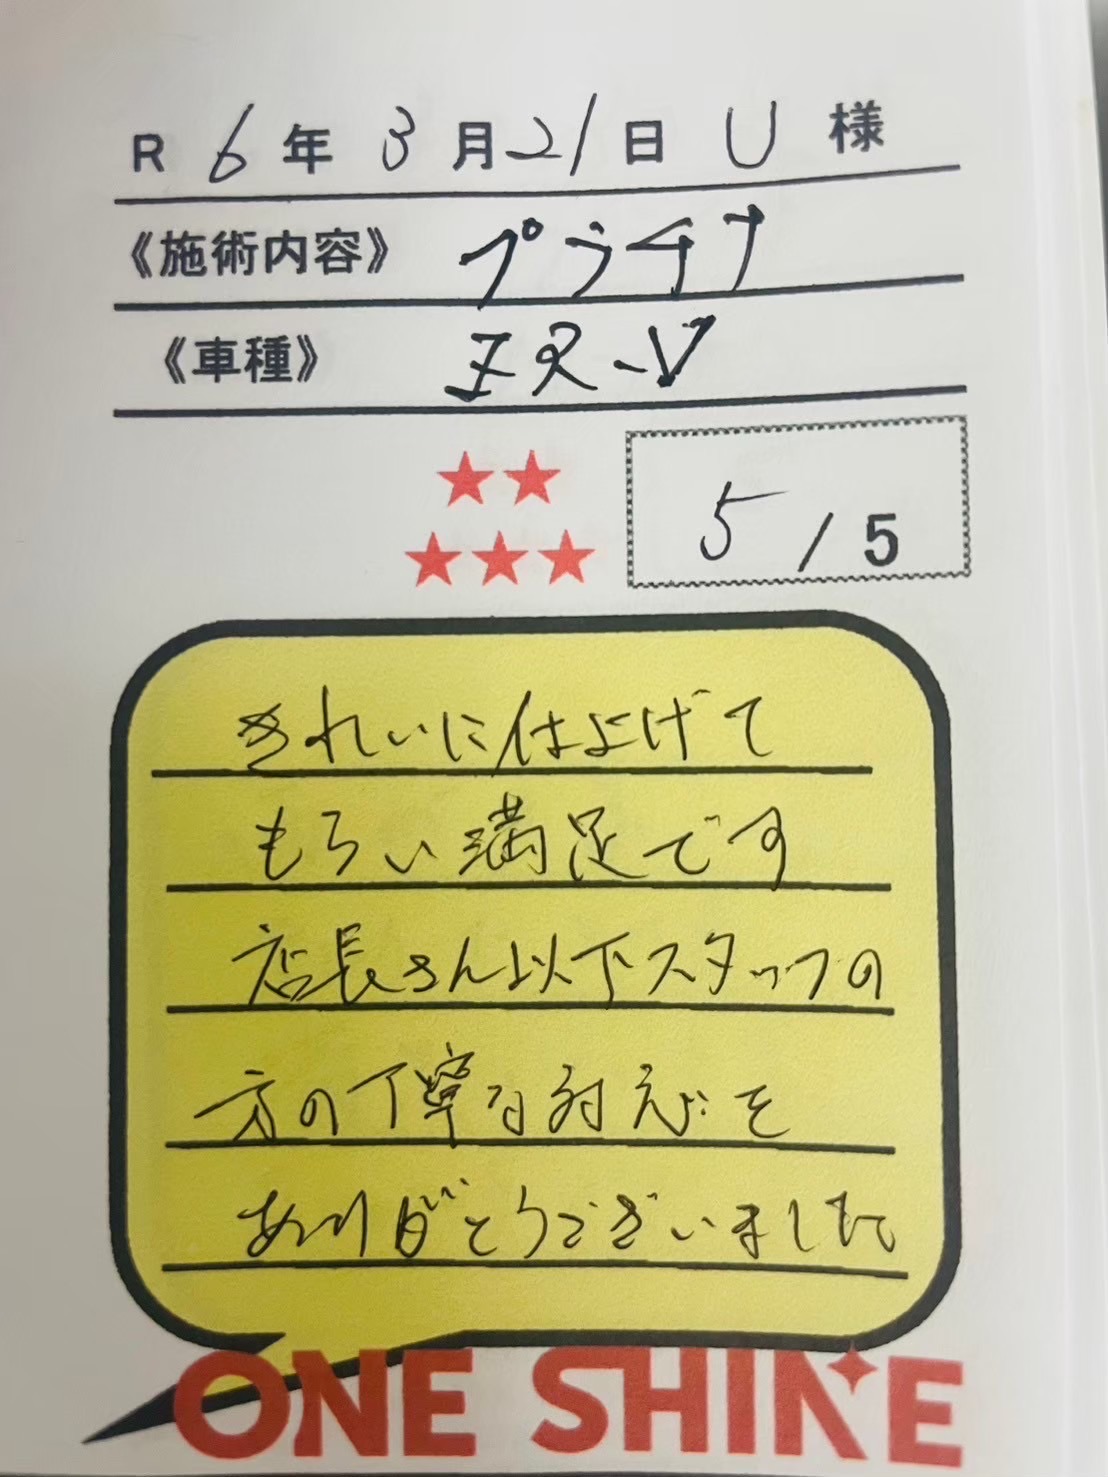 R 6 年 3 月 21 日 U 様
《施術内容》 プラチナ
《車種》 ZR-V
5 / 5
きれいに仕上げて
もらい満足です
店長さん以下スタッフの
方の丁寧な対応を
ありがとうございました
ONE SHINE